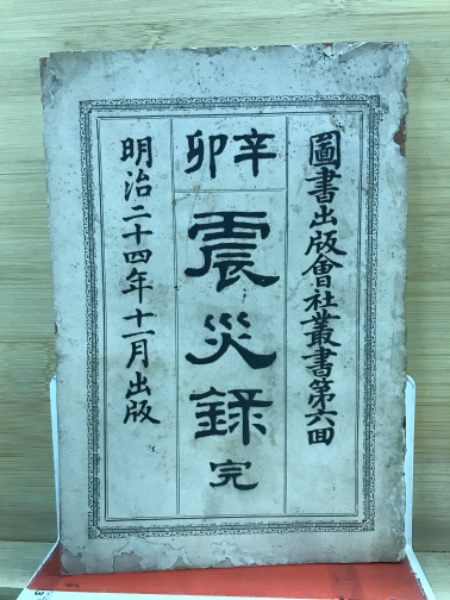 圖書出版會社叢書第六回
辛卯
震災録
完
明治二十四年十一月出版